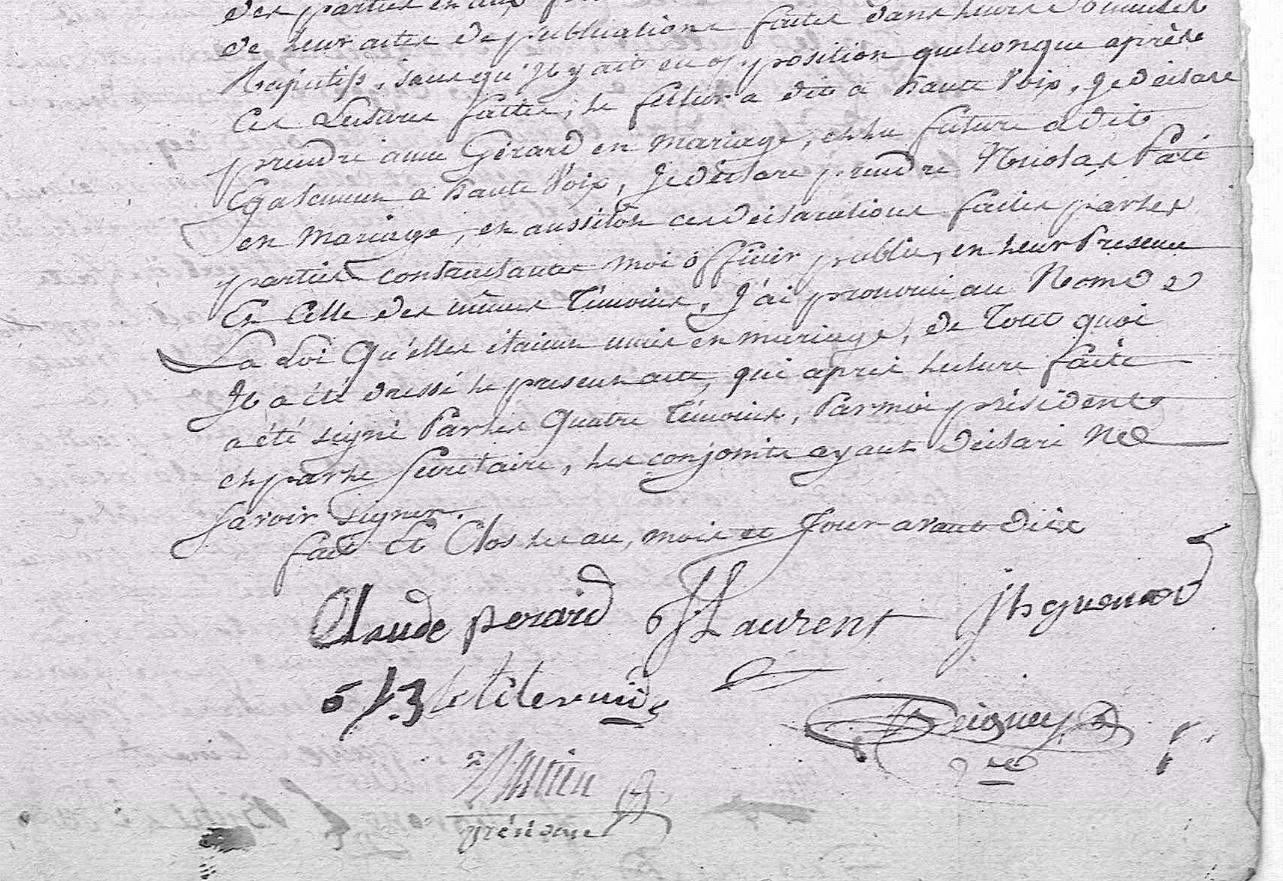 des parties en aux
de leur actes de publications faites dans leurs Domiciles
Respectifs, sans qu'Il y ait eu opposition quelconque après le
Ces Lectures faites, le futtur a dit à haute Voix, Je déclare
prendre anne Gérard en mariage, et la future a dit
Egalement a haute Voix, Je déclare prendre Nicolas Paté
en Mariage, et aussitôt ces déclarations faites par les
parties contractantes moi officier public, en leur Presence
Et Celle des mêmes Témoins, J'ai prononcé au Nom de
La Loi Qu'elles étaient unies en mariage, de Tout quoi
Il a été dressé le present acte, qui après lecture faite
a été signé Par les Quatre Témoins, Par moi président
et par le Secretaire, les conjoints ayant Déclaré Ne
savoir signer.
fait Et Clos les an, mois et Jour avant dits
Claude perard Laurent
président